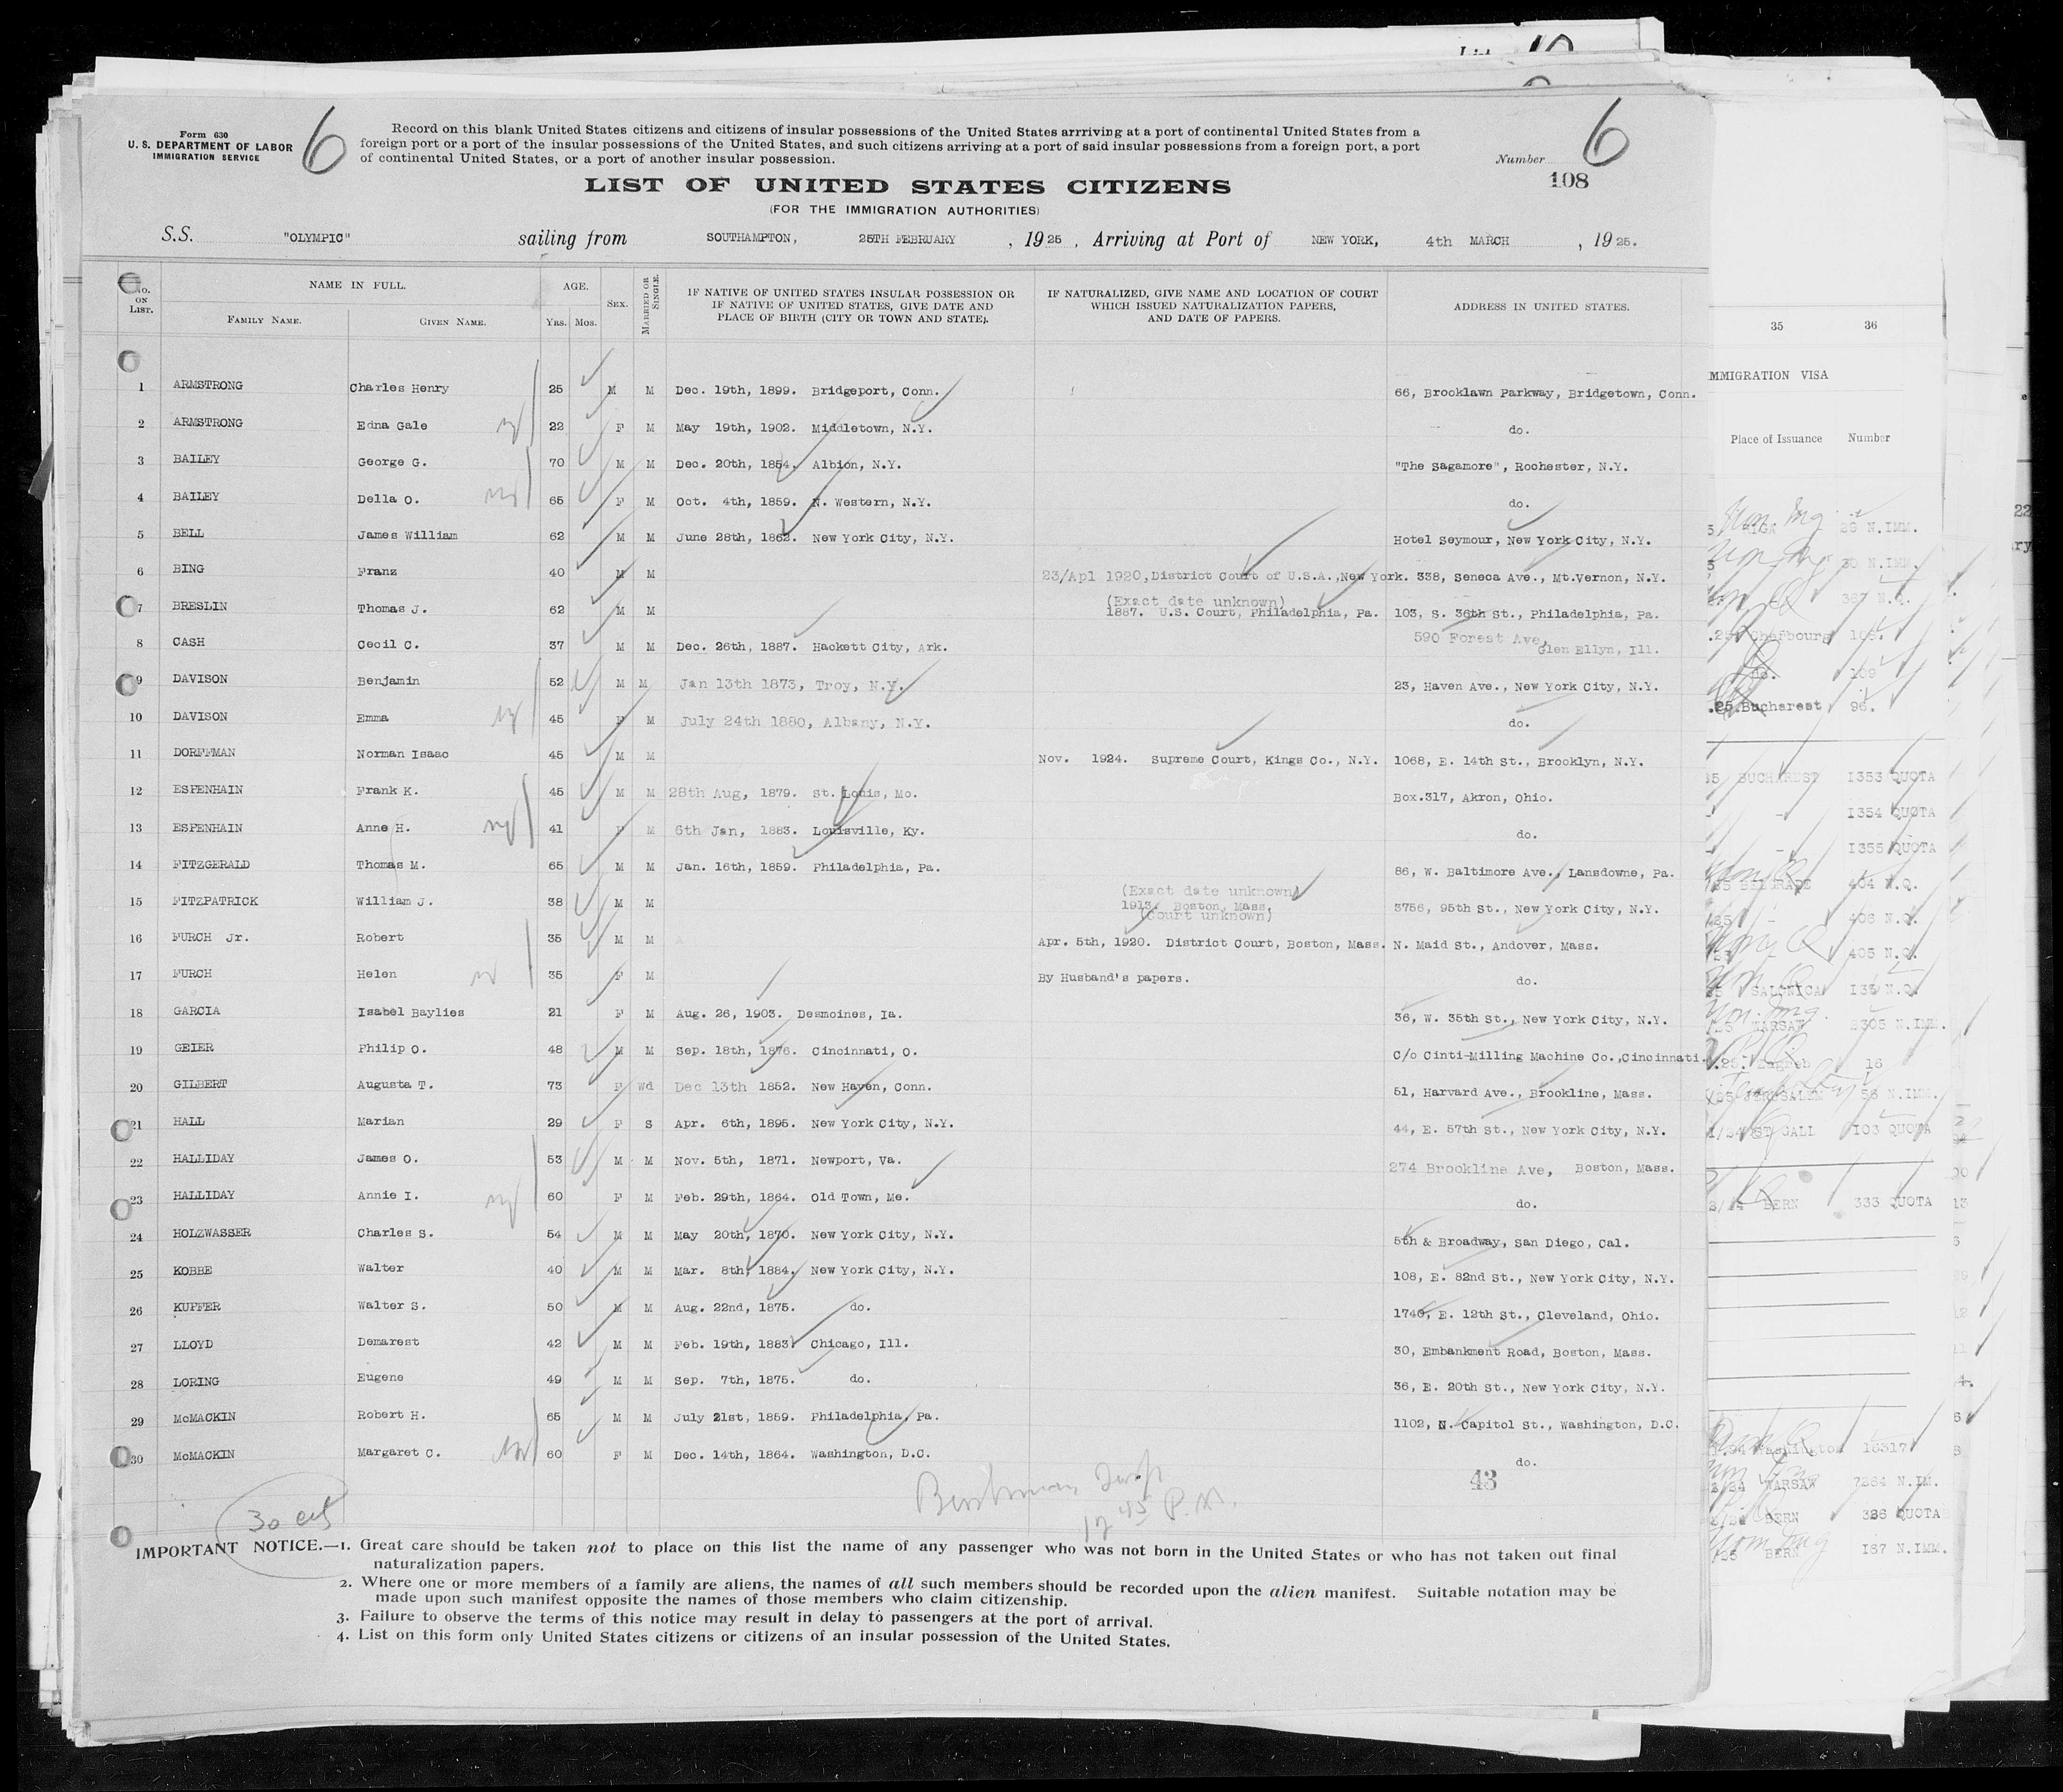 Form 630
U. S. DEPARTMENT OF LABOR
IMMIGRATION SERVICE
6
Record on this blank United States citizens and citizens of insular possessions of the United States arrriving at a port of continental United States from a
foreign port or a port of the insular possessions of the United States, and such citizens arriving at a port of said insular possessions from a foreign port, a port
of continental United States, or a port of another insular possession.
Number 6
108
LIST OF UNITED STATES CITIZENS
(FOR THE IMMIGRATION AUTHORITIES)
S.S. "OLYMPIC" sailing from SOUTHAMPTON, 25TH FEBRUARY , 1925 , Arriving at Port of NEW YORK, 4th MARCH , 1925.
No. ON LIST. NAME IN FULL. FAMILY NAME. GIVEN NAME. AGE. YRS. MOS. SEX. MARRIED OR SINGLE. IF NATIVE OF UNITED STATES INSULAR POSSESSION OR IF NATIVE OF UNITED STATES, GIVE DATE AND PLACE OF BIRTH (CITY OR TOWN AND STATE). IF NATURALIZED, GIVE NAME AND LOCATION OF COURT WHICH ISSUED NATURALIZATION PAPERS, AND DATE OF PAPERS. ADDRESS IN UNITED STATES.
1 ARMSTRONG Charles Henry 25 M M Dec. 19th, 1899. Bridgeport, Conn. 66, Brooklawn Parkway, Bridgetown, Conn.
2 ARMSTRONG Edna Gale 22 F M May 19th, 1902. Middletown, N.Y. do.
3 BAILEY George G. 70 M M Dec. 20th, 1854. Albion, N.Y. "The Sagamore", Rochester, N.Y.
4 BAILEY Della O. 65 F M Oct. 4th, 1859. N. Western, N.Y. do.
5 BELL James William 62 M M June 28th, 1862. New York City, N.Y. Hotel Seymour, New York City, N.Y.
6 BING Franz 40 M M 23/Apl 1920, District Court of U.S.A., New York. 338, Seneca Ave., Mt.Vernon, N.Y.
7 BRESLIN Thomas J. 62 M M (Exact date unknown) 1887. U.S. Court, Philadelphia, Pa. 103, S. 36th St., Philadelphia, Pa.
8 CASH Cecil C. 37 M M Dec. 26th, 1887. Hackett City, Ark. 590 Forest Ave, Glen Ellyn, Ill.
9 DAVISON Benjamin 52 M M Jan 13th 1873, Troy, N.Y. 23, Haven Ave., New York City, N.Y.
10 DAVISON Emma 45 F M July 24th 1880, Albany, N.Y. do.
11 DORFFMAN Norman Isaac 45 M M Nov. 1924. Supreme Court, Kings Co., N.Y. 1068, E. 14th St., Brooklyn, N.Y.
12 ESPENHAIN Frank K. 45 M M 28th Aug, 1879. St. Louis, Mo. Box.317, Akron, Ohio.
13 ESPENHAIN Anne H. 41 F M 6th Jan, 1883. Louisville, Ky. do.
14 FITZGERALD Thomas M. 65 M M Jan. 16th, 1859. Philadelphia, Pa. 86, W. Baltimore Ave., Lansdowne, Pa.
15 FITZPATRICK William J. 38 M M (Exact date unknown) 1913. Boston, Mass. (Court unknown) 3756, 95th St., New York City, N.Y.
16 FURCH Jr. Robert 35 M M Apr. 5th, 1920. District Court, Boston, Mass. N. Maid St., Andover, Mass.
17 FURCH Helen 35 F M By Husband's papers. do.
18 GARCIA Isabel Baylies 21 F M Aug. 26, 1903. Desmoines, Ia. 36, W. 35th St., New York City, N.Y.
19 GEIER Philip O. 48 M M Sep. 18th, 1876. Cincinnati, O. C/o Cinti-Milling Machine Co., Cincinnati.
20 GILBERT Augusta T. 73 F Wd Dec 13th 1852. New Haven, Conn. 51, Harvard Ave., Brookline, Mass.
21 HALL Marian 29 F S Apr. 6th, 1895. New York City, N.Y. 44, E. 57th St., New York City, N.Y.
22 HALLIDAY James O. 53 M M Nov. 5th, 1871. Newport, Va. 274 Brookline Ave, Boston, Mass.
23 HALLIDAY Annie I. 60 F M Feb. 29th, 1864. Old Town, Me. do.
24 HOLZWASSER Charles S. 54 M M May 20th, 1870. New York City, N.Y. 5th & Broadway, San Diego, Cal.
25 KOBBE Walter 40 M M Mar. 8th, 1884. New York City, N.Y. 108, E. 82nd St., New York City, N.Y.
26 KUPFER Walter S. 50 M M Aug. 22nd, 1875. do. 1740, E. 12th St., Cleveland, Ohio.
27 LLOYD Demarest 42 M M Feb. 19th, 1883 Chicago, Ill. 30, Embankment Road, Boston, Mass.
28 LORING Eugene 49 M M Sep. 7th, 1875. do. 36, E. 20th St., New York City, N.Y.
29 McMACKIN Robert H. 65 M M July 21st, 1859. Philadelphia, Pa. 1102, N. Capitol St., Washington, D.C.
30 McMACKIN Margaret C. 60 F M Dec. 14th, 1864. Washington, D.C. do.
43
12 45 P.M.
30
IMPORTANT NOTICE.—1. Great care should be taken not to place on this list the name of any passenger who was not born in the United States or who has not taken out final
naturalization papers.
2. Where one or more members of a family are aliens, the names of all such members should be recorded upon the alien manifest. Suitable notation may be
made upon such manifest opposite the names of those members who claim citizenship.
3. Failure to observe the terms of this notice may result in delay to passengers at the port of arrival.
4. List on this form only United States citizens or citizens of an insular possession of the United States.
35 36
MMIGRATION VISA
Place of Issuance Number
RIGA 29 N.IMM.
30 N.IMM.
Cherbourg 108.
do. 109
Bucharest 96.
BUCHAREST 1353 QUOTA
1354 QUOTA
1355 QUOTA
BELGRADE 404 N.Q.
406 N.Q.
405 N.Q.
SALONICA
WARSAW 2305 N.IMM.
Zagreb 16
JERUSALEM 56 N.IMM.
ST GALL 103 QUOTA
BERN 333 QUOTA
Washington 16317
WARSAW 7364 N.IM.
BERN 336 QUOTA
BERN 187 N.IMM.